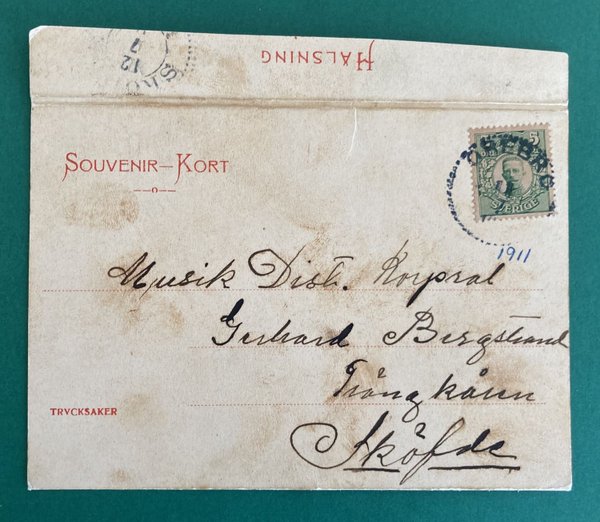 HÄLSNING
12
7
SKÖ
SOUVENIR–KORT
5
SVERIGE
ÖREBRO
1911
Musik Dist. Korpral
Gerhard Bergstrand
Trängkåren
TRYCKSAKER
Sköfde